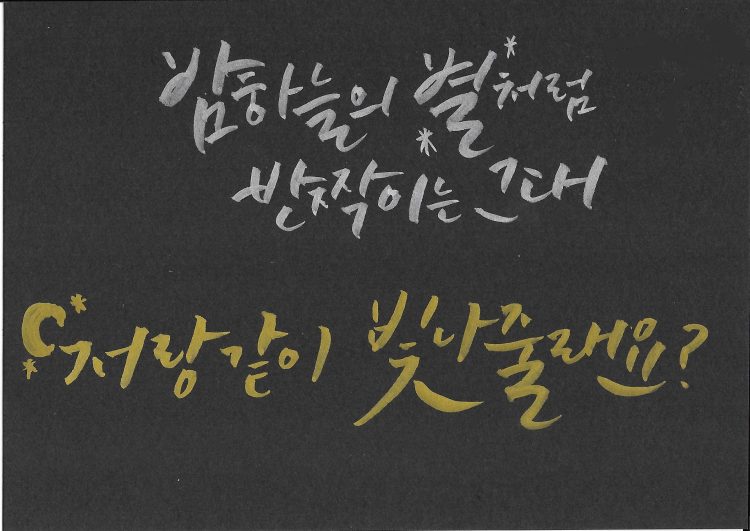 밤하늘의 별처럼
반짝이는 그대
저랑같이 빛나줄래요?